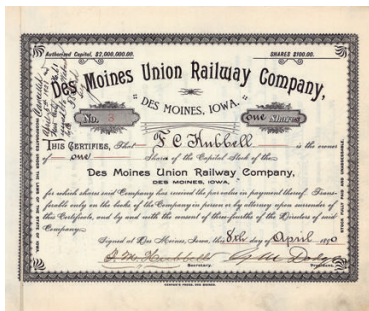 Authorized Capital, $2,000,000.00.
SHARES $100.00.
Des Moines Union Railway Company,
DES MOINES, IOWA.
No. 3
One Shares
THIS CERTIFIES, That F. C. Hubbell is the owner
of one Shares of the Capital Stock of the
Des Moines Union Railway Company,
DES MOINES, IOWA,
for which shares said Company has received the par value in payment thereof. Trans-
ferable only on the books of the Company in person or by attorney upon surrender of
this Certificate, and by and with the consent of three-fourths of the Directors of said
Company.
Signed at Des Moines, Iowa, this 8th day of April 1890
F. M. Hubbell Secretary.
G. M. Dodge President.